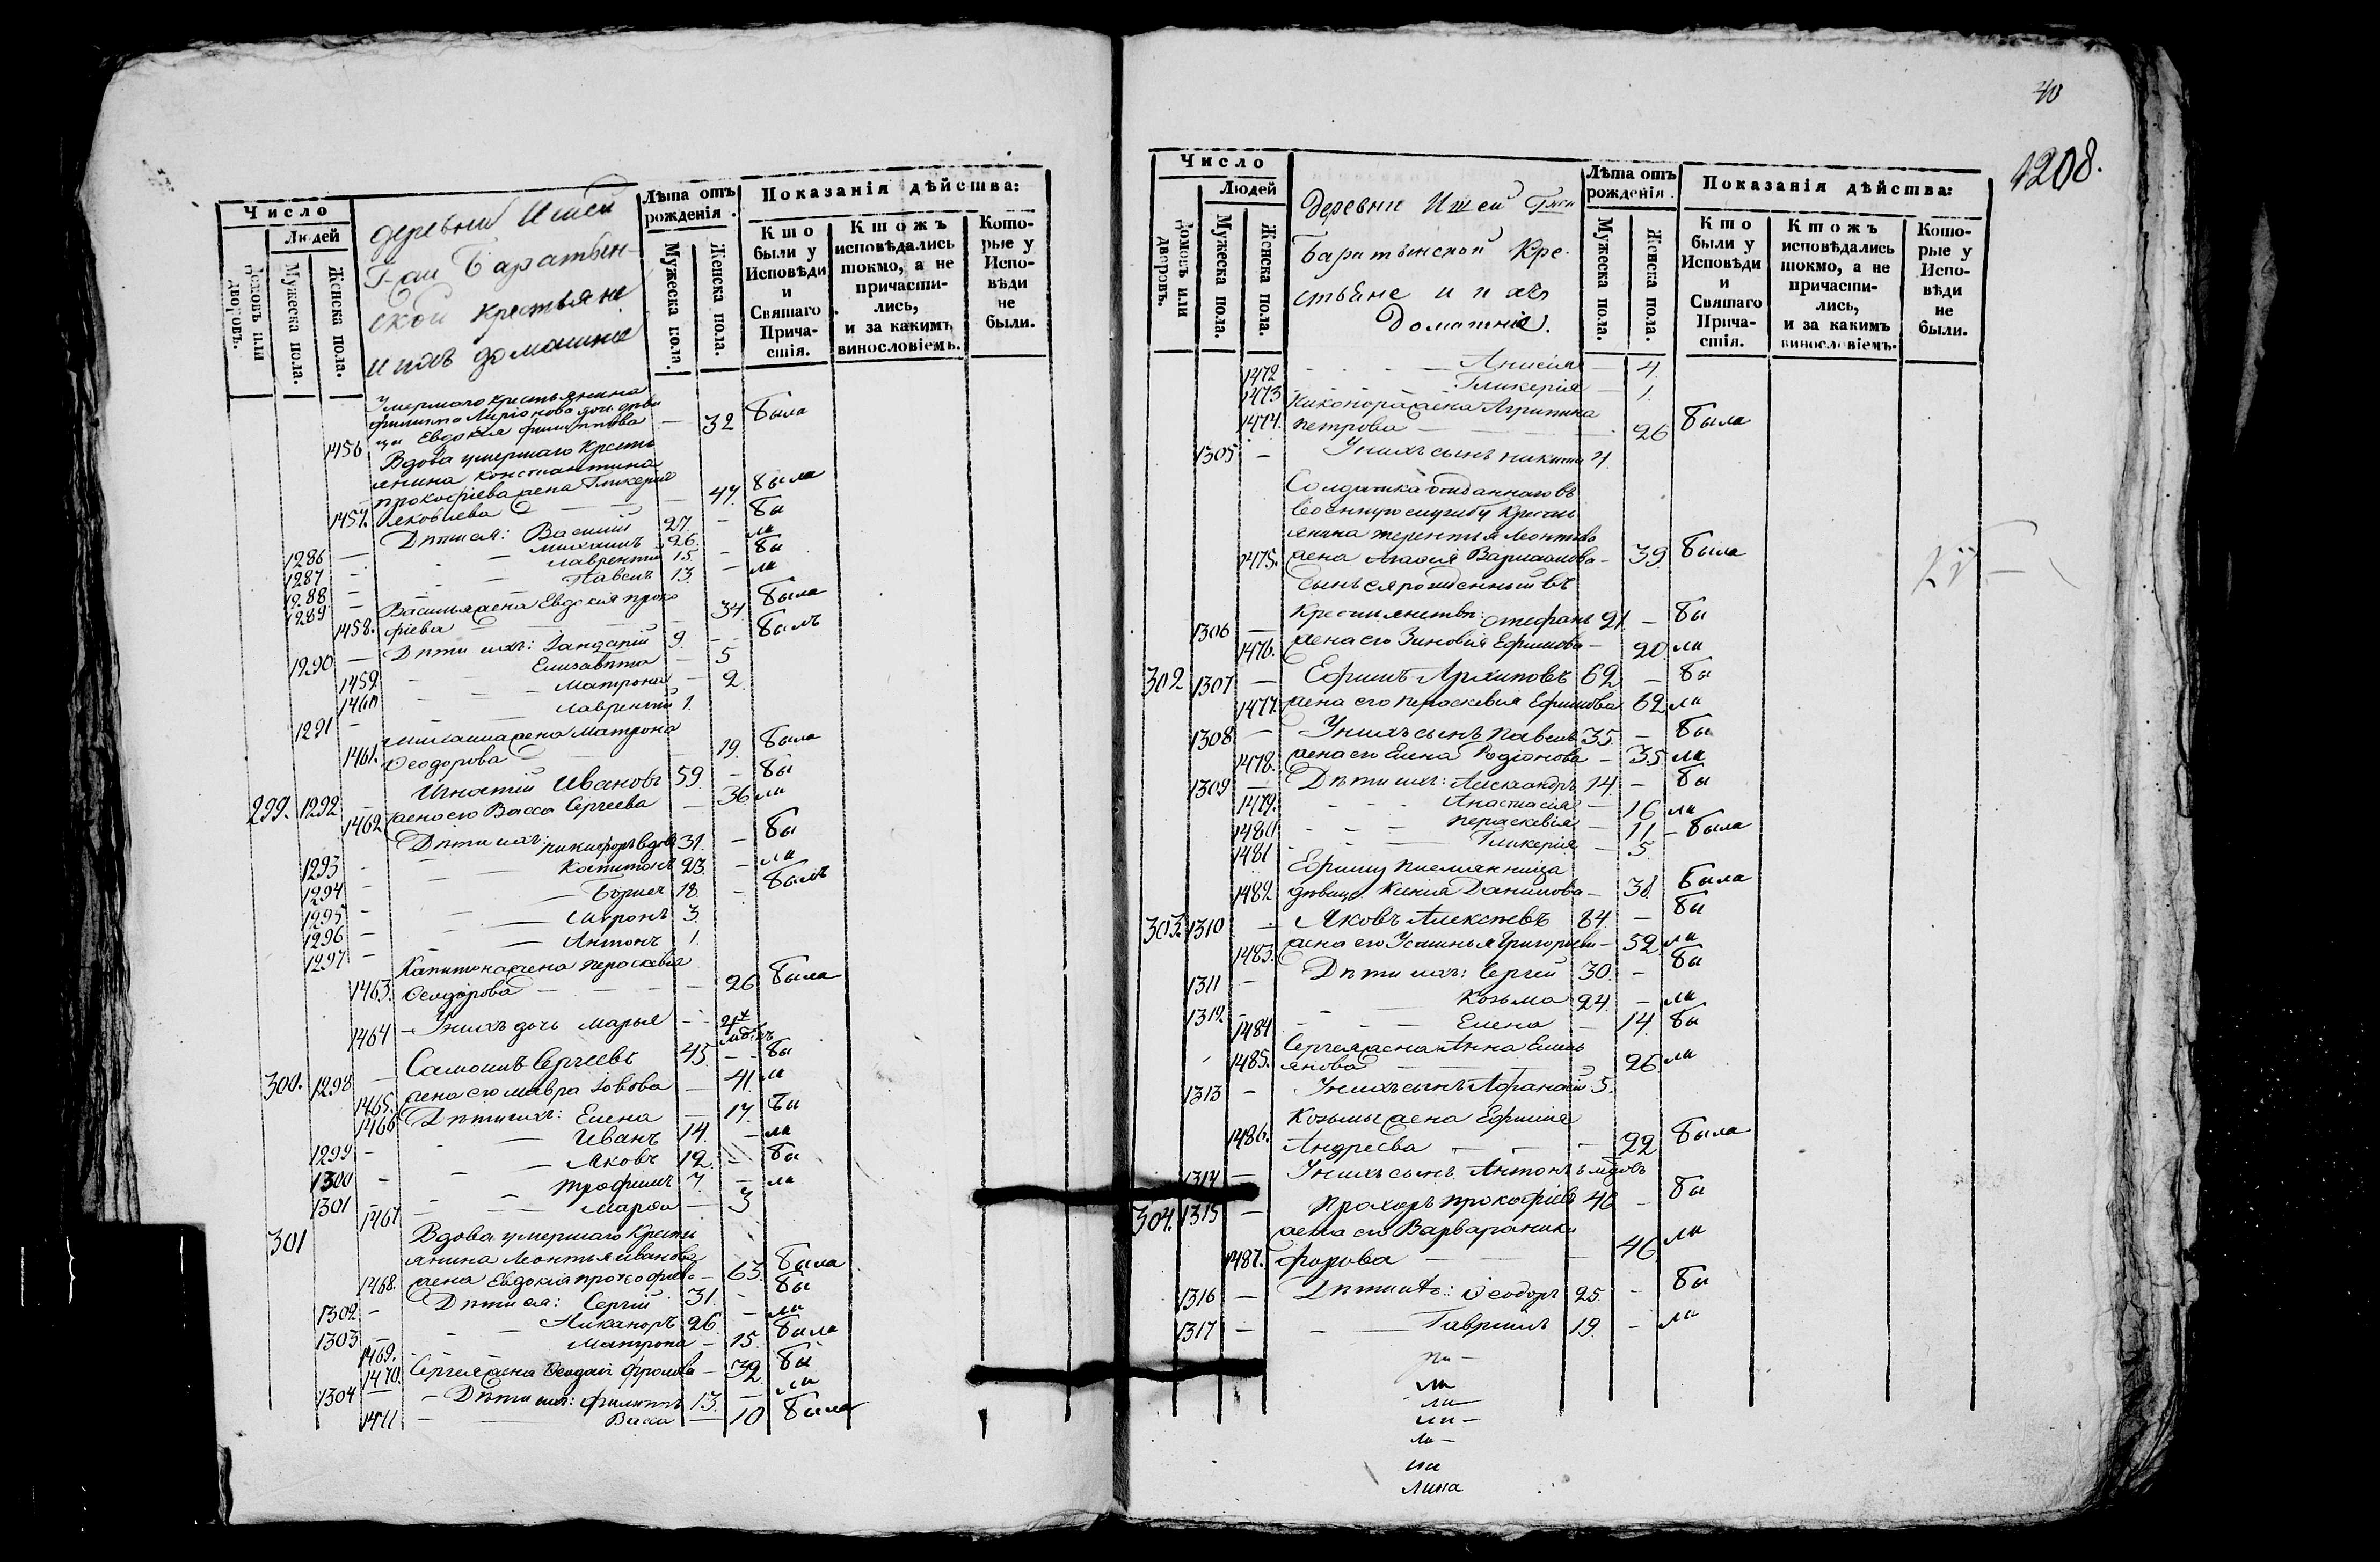 Число
Людей
Домовъ или дворовъ.
Мужеска пола.
Женска пола.
деревни Ижей
Г-жи Баратын-
ской крестьяне
и ихъ домашніе
Лѣта отъ рожденія.
Мужеска пола.
Женска пола.
Показанія дѣйства:
Кто были у Исповѣди и Святаго Причастія.
Ктожъ исповѣдались токмо, а не причастились, и за какимъ винословіемъ.
Которые у Исповѣди не были.
Умершаго крестьянина
филиппа Ларіонова дочь дѣви
1456 ца Евдокія филиппова — 32 была
Вдова умершаго Крестъ
янина константина
прокофіева жена Гликерія
1457. яковлева — 47. была
1286 — Дѣти ея: Василій 27. — бы
1287 — михаилъ 26. — ли
1288 — лаврентій 15. — бы
1289 — Павелъ 13. — ли
Василья жена Евдокія проко
1458. фіева — 34 была
1290 — Дѣти ихъ: 9. — былъ
1459 Елизавѣта — 5
1460 Матрона — 2
1291 — лаврентій 1.
михаила жена Матрона
1461. Ѳеодорова — 19. была
299. 1292 — Игнатій Ивановъ 59. — бы
1462 жена его Васса Сергеева — 36 ли
1293 — Дѣти ихъ: никифоръ вдовъ 31. — бы
1294 — Капитонъ 23. — ли
1295 — Борисъ 18. — былъ
1296 — Миронъ 3.
1297 — Антонъ 1.
Капитона жена пераскевія
1463. Ѳеодорова — 26 была
1464 — У нихъ дочь марья —
300. 1298 — Самоилъ Сергеевъ 45. — бы
1465. жена его мавра Іовова — 41. ли
1466 Дѣти ихъ: Елена — 17. бы
1299 — Иванъ 14. — ли
1300 — Яковъ 12. — бы
1301 — трофимъ 7. — ли
1467 Марѳа — 3
301 Вдова умершаго Крестъ
янина Леонтья иванова
1468. жена Евдокія прокофіева — 63. была
1302 — Дѣти ея: Сергій 31. — бы
1303 — Никаноръ 26. — ли
1469. Матрона — 15. была
1470. Сергея жена фролова — 32. бы
1304 — Дѣти ихъ: филиппъ 13. — ли
1471 — Васса — 10 была
40
1208.
Число
Людей
Домовъ или дворовъ.
Мужеска пола.
Женска пола.
Деревни Ижей Г-жи
Баратынской Кре-
стьяне и ихъ
Домашніе.
Лѣта отъ рожденія.
Мужеска пола.
Женска пола.
Показанія дѣйства:
Кто были у Исповѣди и Святаго Причастія.
Ктожъ исповѣдались токмо, а не причастились, и за какимъ винословіемъ.
Которые у Исповѣди не были.
1472 Анисія — 4.
1473 Гликерія — 1.
Никонора жена Агрипина
1474. петрова — 26 была
1305 — У нихъ сынъ никита 4.
Солдатка отданнаго въ
военную службу Крестъ
янина терентья Леонтьева
1475. жена Варлаамова — 39. была
Сынъ ея рожденный въ
1306 — крестьянствѣ: стефанъ 21. — бы
1476. жена его Зиновія Ефимова — 20. ли
302 1307 — Ефимъ Архиповъ 62 — бы
1477. жена его пераскевія Ефимова 62 ли
1308 — У нихъ сынъ павелъ 35. — бы
1478. жена его Елена Родіонова — 35. ли
1309 — Дѣти ихъ: Александръ 14. — бы
1479. Анастасія — 16 ли
1480 пераскевія — 11 — была
1481 Гликерія — 5.
Ефиму племянница
1482 дѣвица Ксенія Данилова — 38. была
303. 1310 — Яковъ Алексѣевъ 84. — бы
1483. жена его Устинья Григорьева — 52 ли
1311 — Дѣти ихъ: Сергей 30. — бы
1312. — Козьма 24. — ли
1484 Елена — 14. бы
Сергея жена Анна Емель
1485. янова — 26 ли
1313 — У нихъ сынъ Аѳанасій 5.
Козьмы жена Ефимія
1486. Андреева — 22 была
1314 — У нихъ сынъ Антонъ
304. 1315 — Прохоръ прокофіевъ 46 — бы
жена его Варвара ники
1487. форова — 46 ли
1316 — Дѣти ихъ: Ѳеодоръ 25. — бы
1317 — Гавріилъ 19. — ли
ли
ли